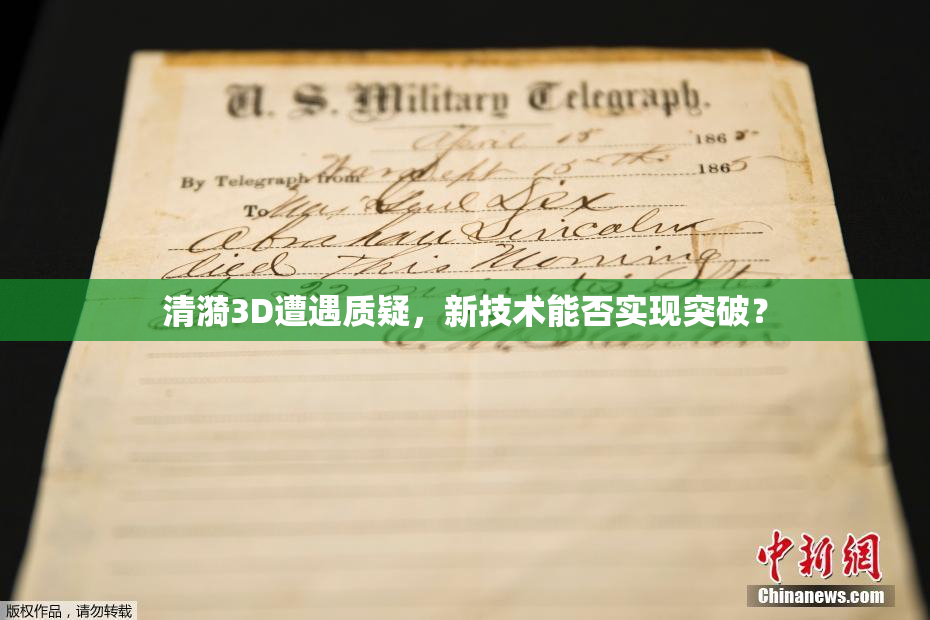 U. S. Military Telegraph.
April 15 1865
By Telegraph from War Dept 15th 1865
To Maj Genl Dix
Abraham Lincoln
died This Morning
at 22 minutes after
清漪3D遭遇质疑，新技术能否实现突破？
E. M. Stanton
中新網
Chinanews.com
版权作品，请勿转载